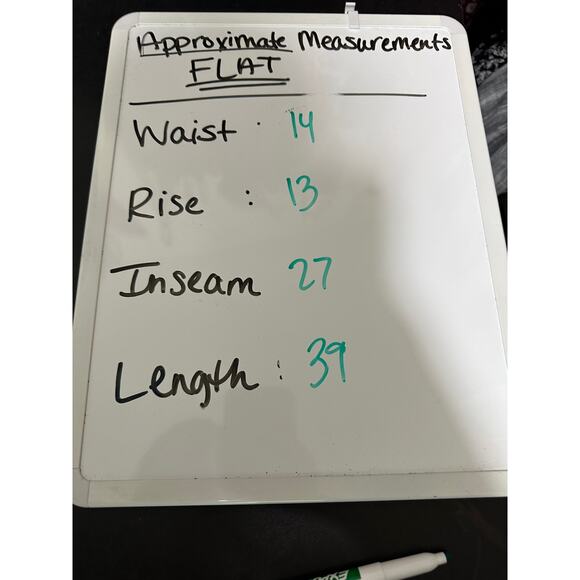 Approximate Measurements
FLAT
Waist : 14
Rise : 13
Inseam 27
Length : 39